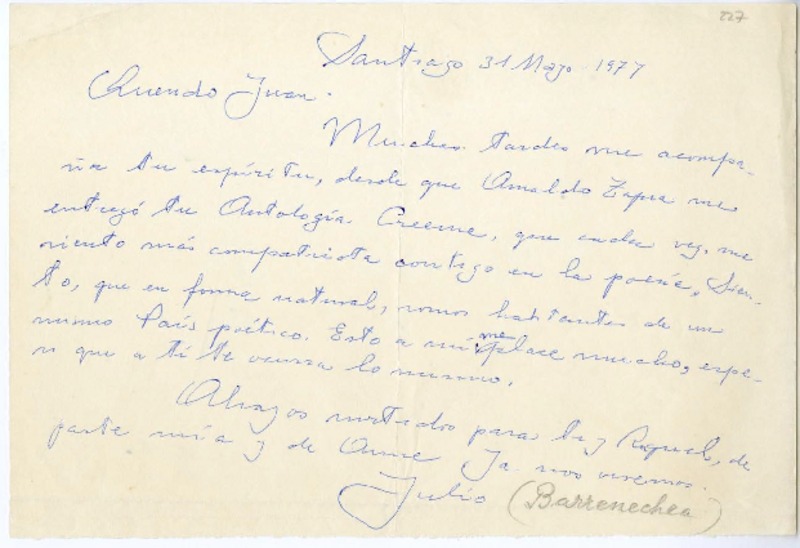 227
Santiago 31 Mayo 1977
Querido Juan.
Muchas tardes me acompa-
ña tu espíritu, desde que Arnaldo Zapa me
entregó tu Antología. Creeme, que cada vez, me
siento más compatriota contigo en la poesía, Sien-
to, que en forma natural, somos habitantes de un
mismo País poético. Esto a mí me place mucho, espe-
ro que a ti te ocurra lo mismo.
Abrazos para ti y Raquel, de
parte mía y de Ya nos veremos.
Julio (Barrenechea)